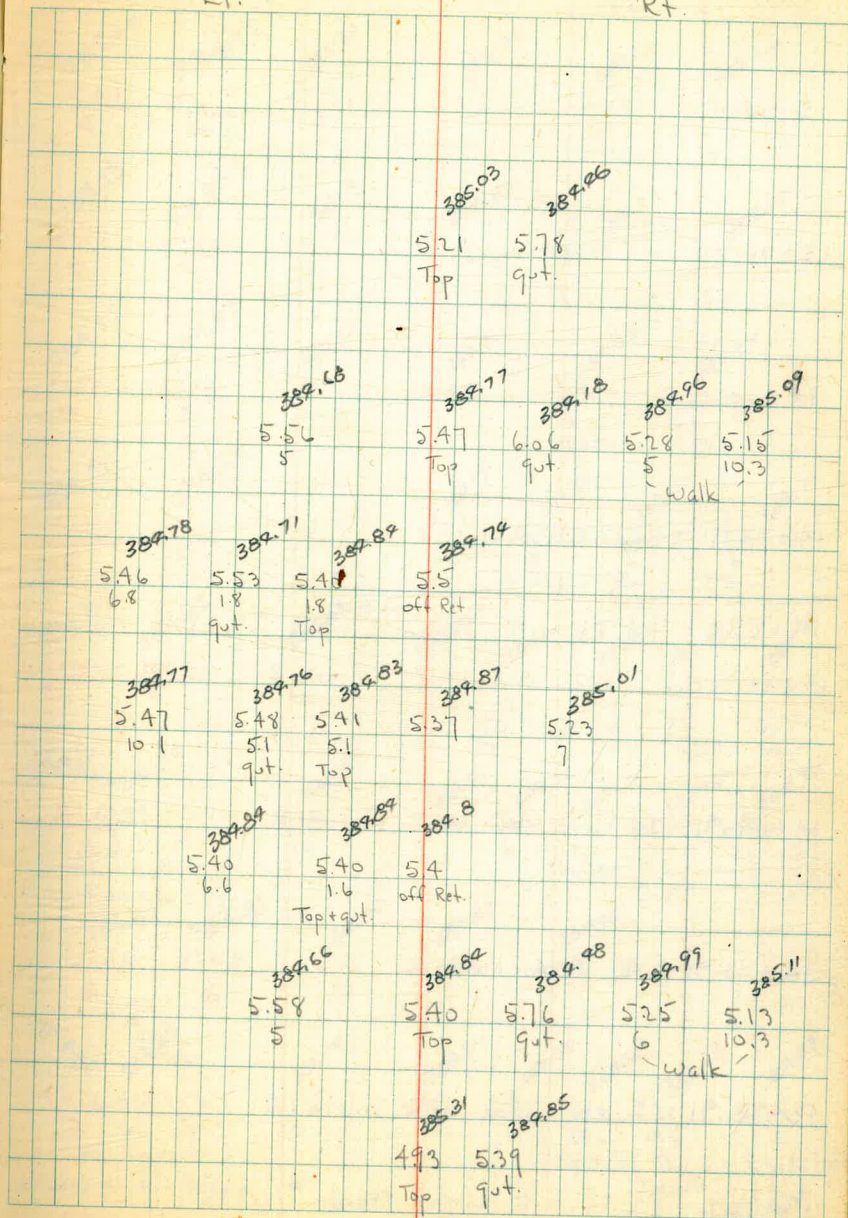 Lt. Rt.
385.03 384.46
5.21 5.78
Top gut.
384.68 384.77 384.18 384.96 385.09
5.56 5.47 6.06 5.28 5.15
5 Top gut. 5 10.3
walk
384.78 384.71 384.84 384.74
5.46 5.53 5.40 5.5
6.8 1.8 1.8 off Ret
gut. Top
384.77 384.76 384.83 384.87 385.01
5.47 5.48 5.41 5.37 5.23
10.1 5.1 5.1 7
gut. Top
384.84 384.84 384.8
5.40 5.40 5.4
6.6 1.6 off Ret.
Top + gut.
384.66 384.84 384.48 384.99 385.11
5.58 5.40 5.76 5.25 5.13
5 Top gut. 6 10.3
walk
385.31 384.85
4.93 5.39
Top gut.